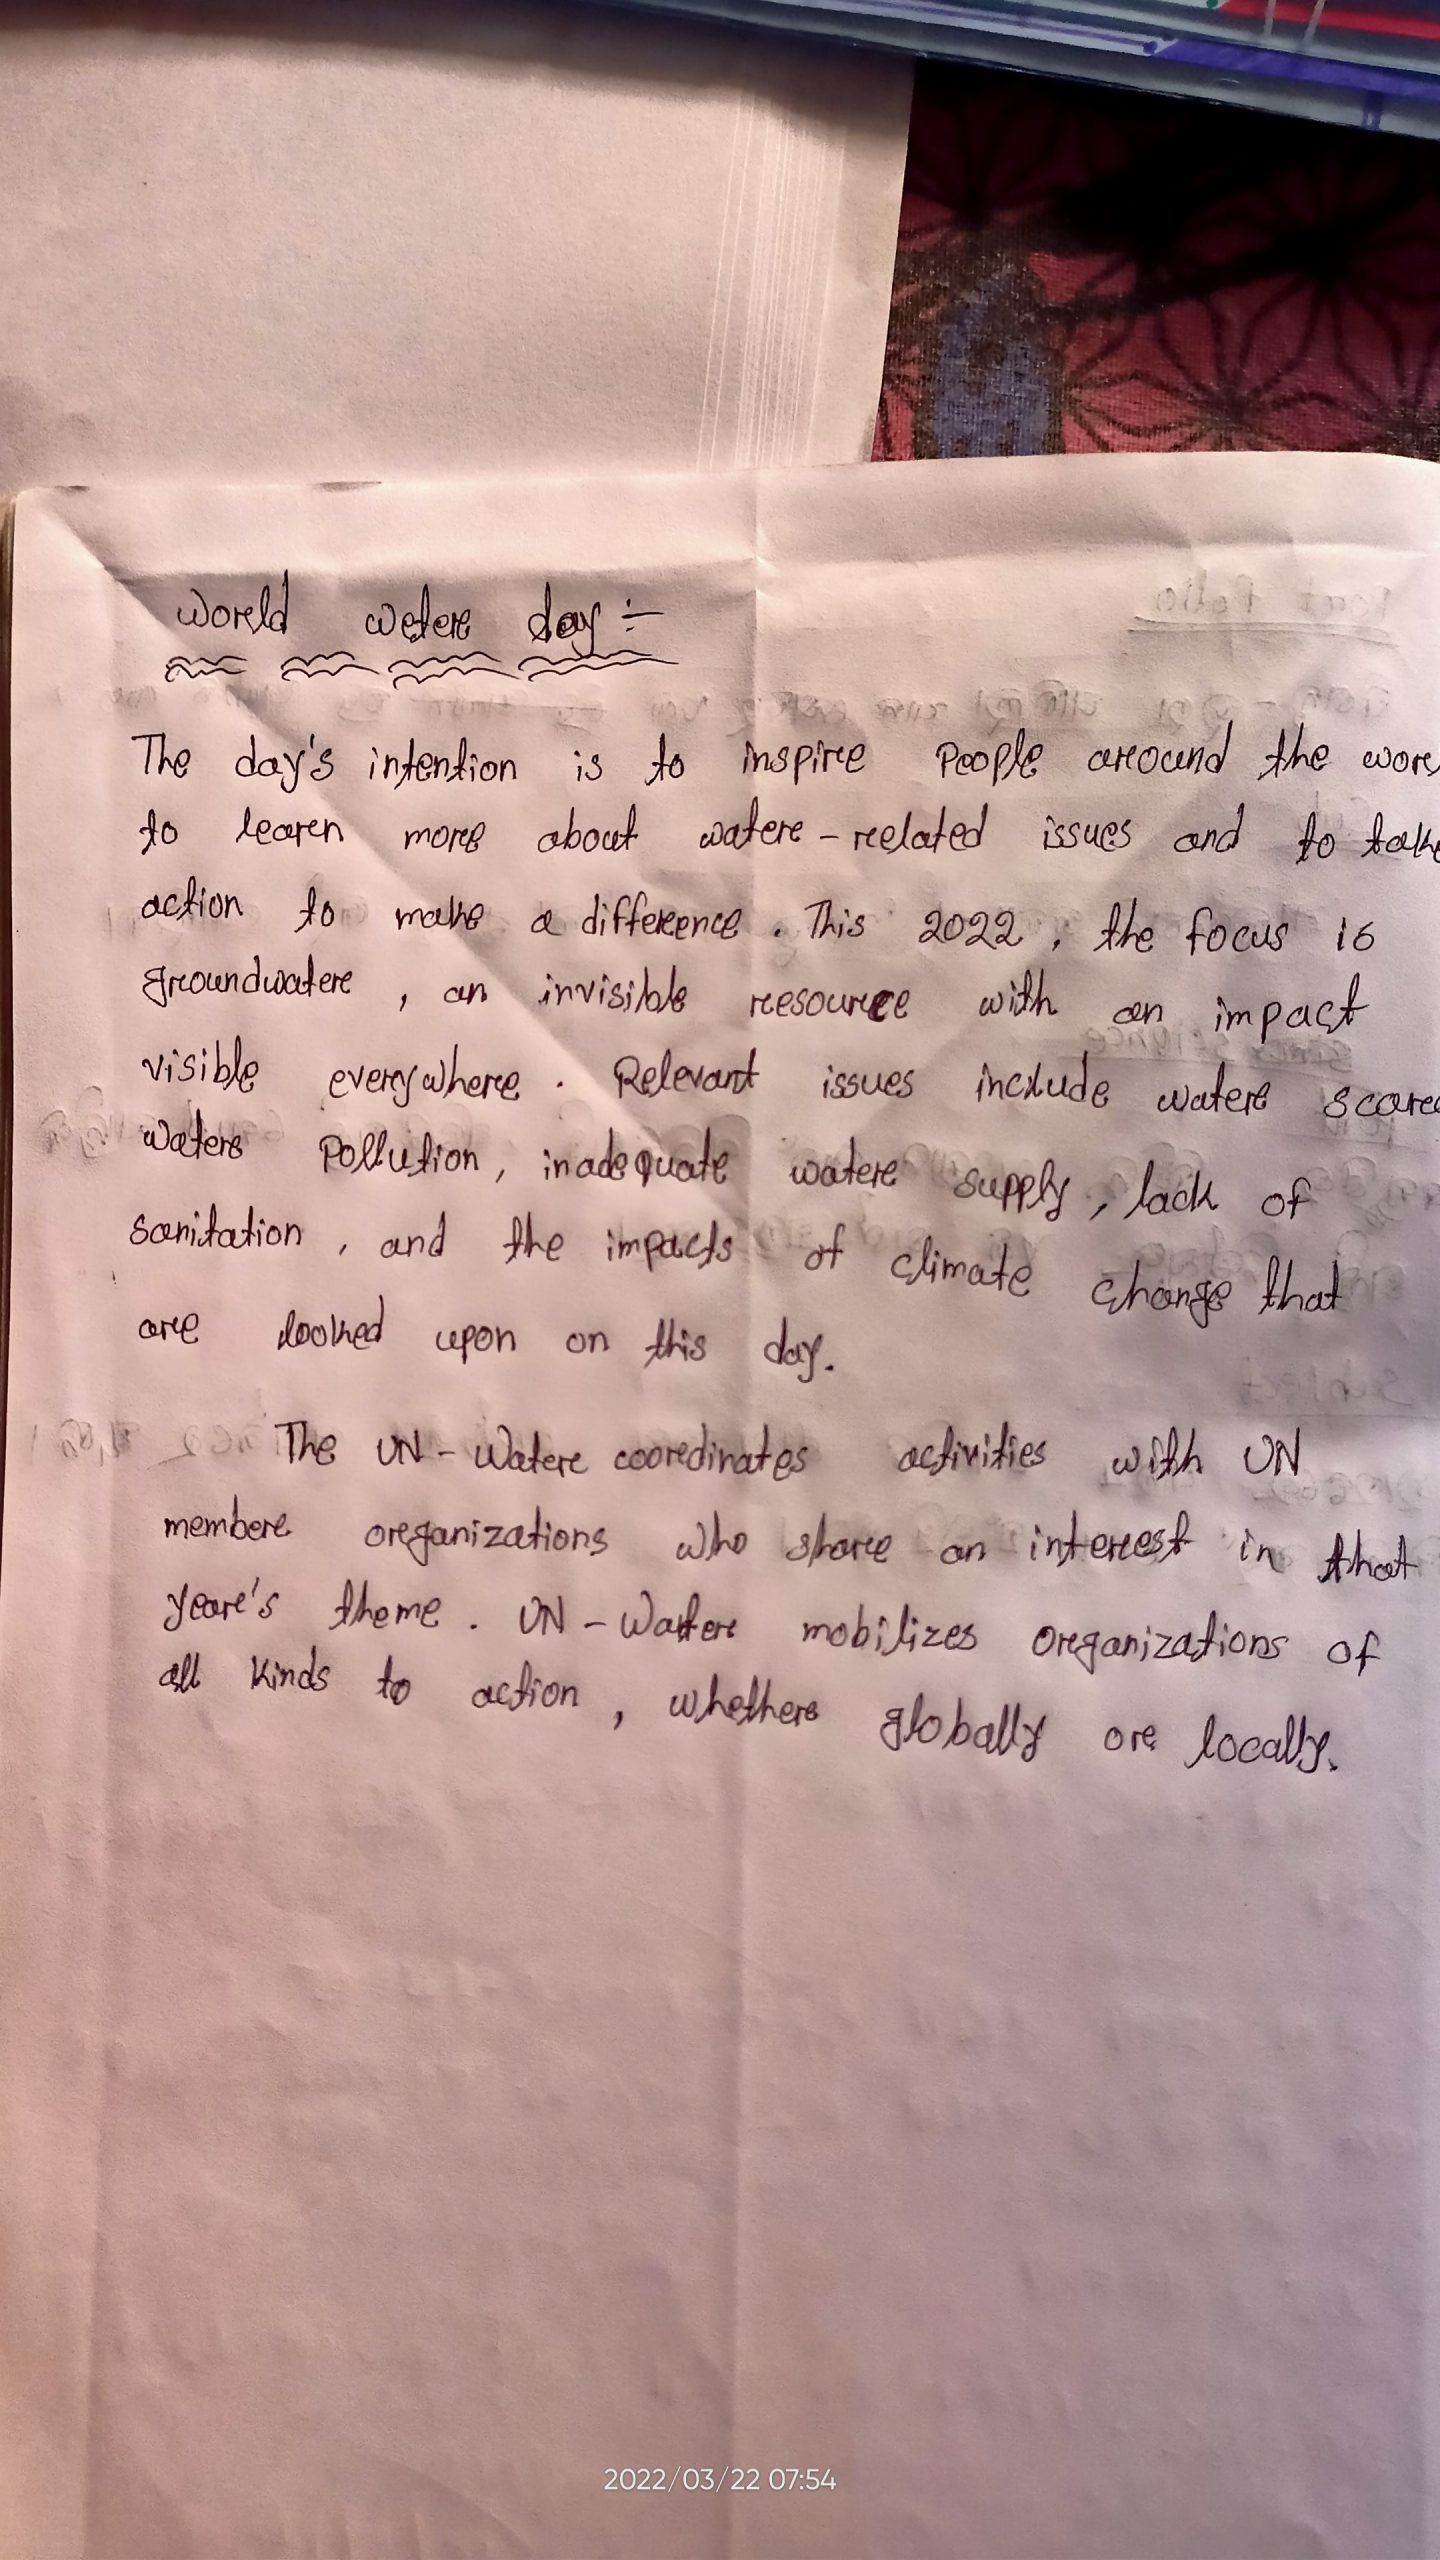 World weter day :-
The day's intention is to inspire People around the wor
to learn more about water - related issues and to take
action to make a difference . This 2022 , the focus is
groundwater , an invisible resource with an impact
visible everywhere . Relevant issues include water scarc
water Pollution , inadequate water supply , lack of
sanitation , and the impacts of climate change that
are looked upon on this day.
The UN - Water coordinates activities with UN
member organizations who share an interest in that
year's theme . UN - Water mobilizes organizations of
all kinds to action , whether globally or locally.
2022/03/22 07:54